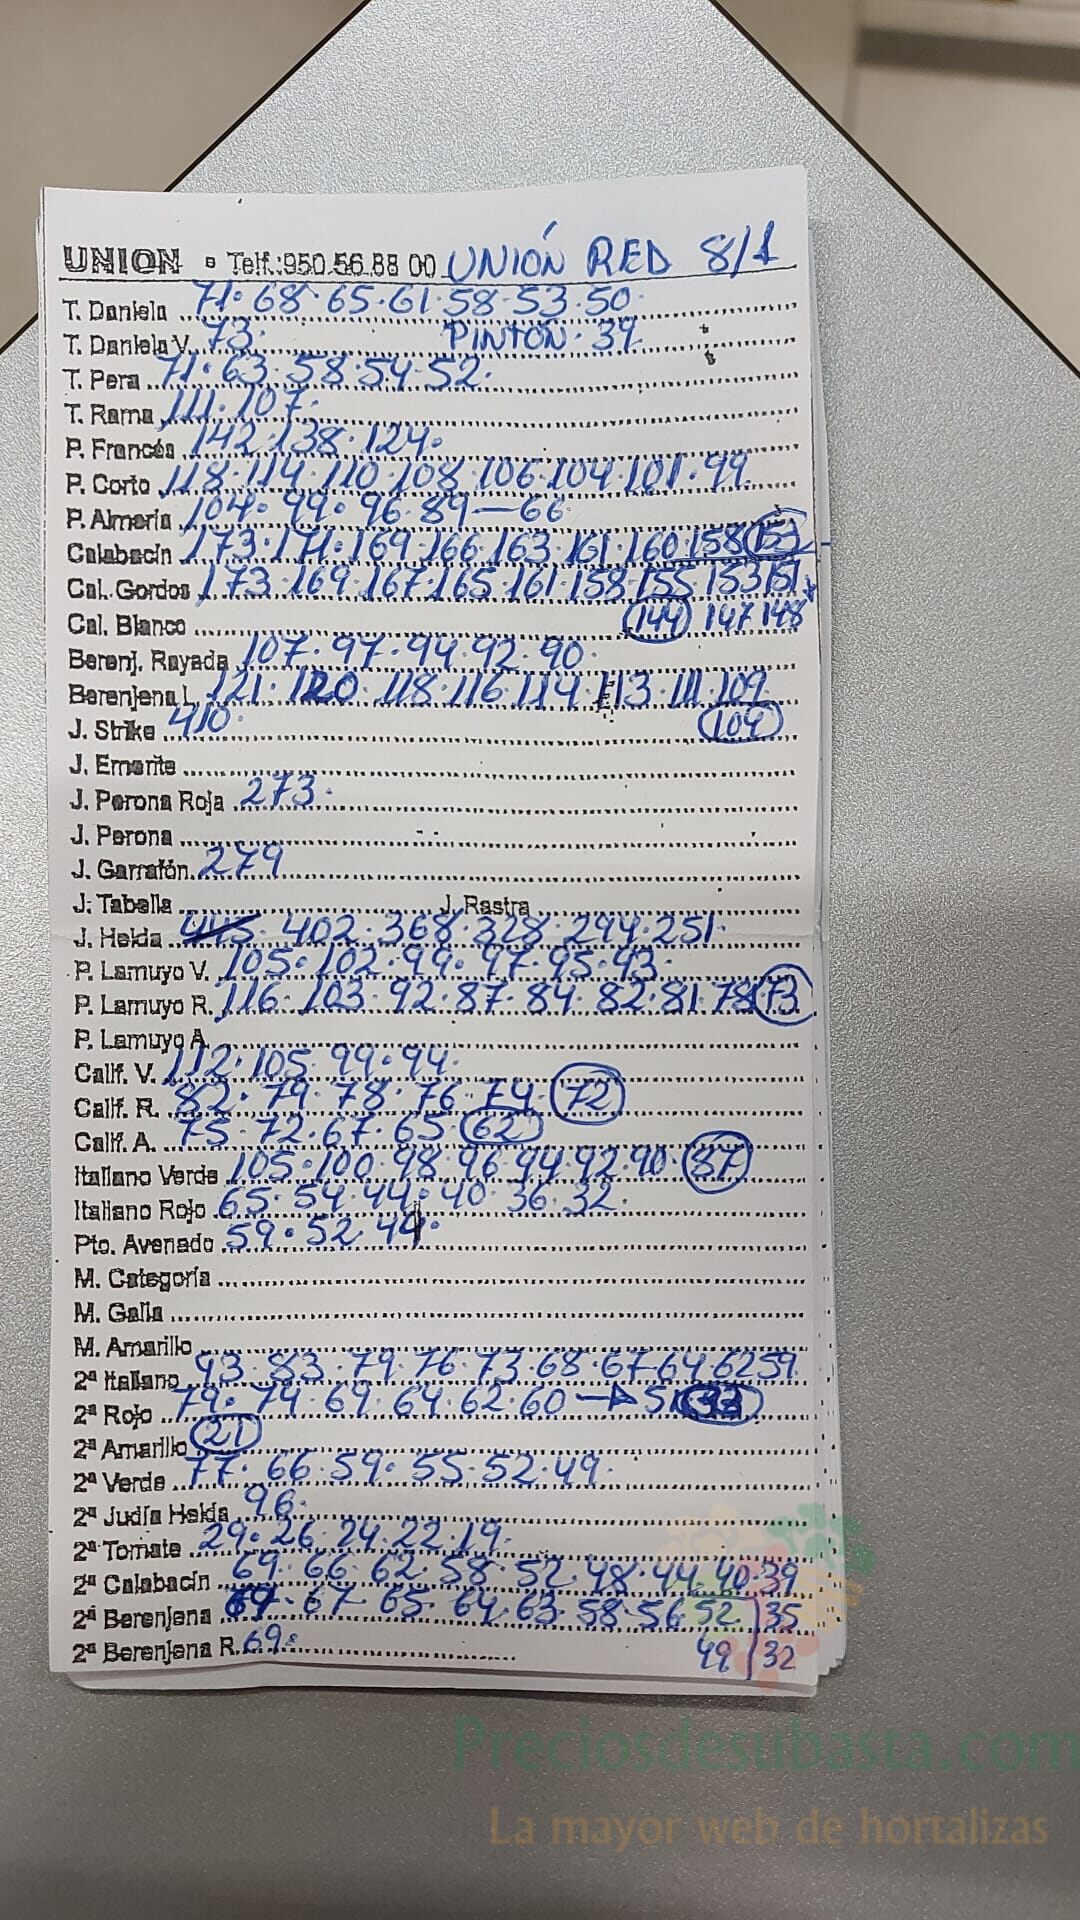 UNION - Telf.:950.56.88 00 UNIÓN RED 8/1
T. Daniela 71·68·65·61·58·53·50·
T. Daniela V. 73· PINTÓN·39
T. Pera 71·63·58·54·52·
T. Rama 111·107·
P. Francés 142·138·124·
P. Corto 118·114·110·108·106·104·101·99
P. Almería 104·99·96·89—66
Calabacín 173·171·169·166·163·161·160·158
Cal. Gordos 173·169·167·165·161·158·155·153 151
Cal. Blanco 144 147 148
Berenj. Rayada 107·97·94·92·90·
Berenjena L. 121·120·118·116·114·113·111·109
J. Strike 410· 104
J. Emerite
J. Perona Roja 273·
J. Perona
J. Garrafón 279
J. Tabella J. Rastra
J. Helda 445·402·368·328·294·251·
P. Lamuyo V. 105·102·99·97·95·93·
P. Lamuyo R. 116·103·92·87·84·82·81·78 73
P. Lamuyo A.
Calif. V. 112·105·99·94·
Calif. R. 82·79·78·76·74·72
Calif. A. 75·72·67·65·62
Italiano Verde 105·100·98·96·94·92·90·87
Italiano Rojo 65·54·44·40·36·32·
Pto. Avenado 59·52·44·
M. Categoría
M. Galia
M. Amarillo
2ª Italiano 93·83·79·76·73·68·67·64 62 59
2ª Rojo 79·74·69·64·62·60
2ª Amarillo 21
2ª Verde 77·66·59·55·52·49·
2ª Judía Helda 96·
2ª Tomate 29·26·24·22·19·
2ª Calabacín 69·66·62·58·52·48·44·40·39
2ª Berenjena 69·67·65·64·63·58·56·52 35
2ª Berenjena R. 69· 49 32
Preciosdesubasta.com
La mayor web de hortalizas